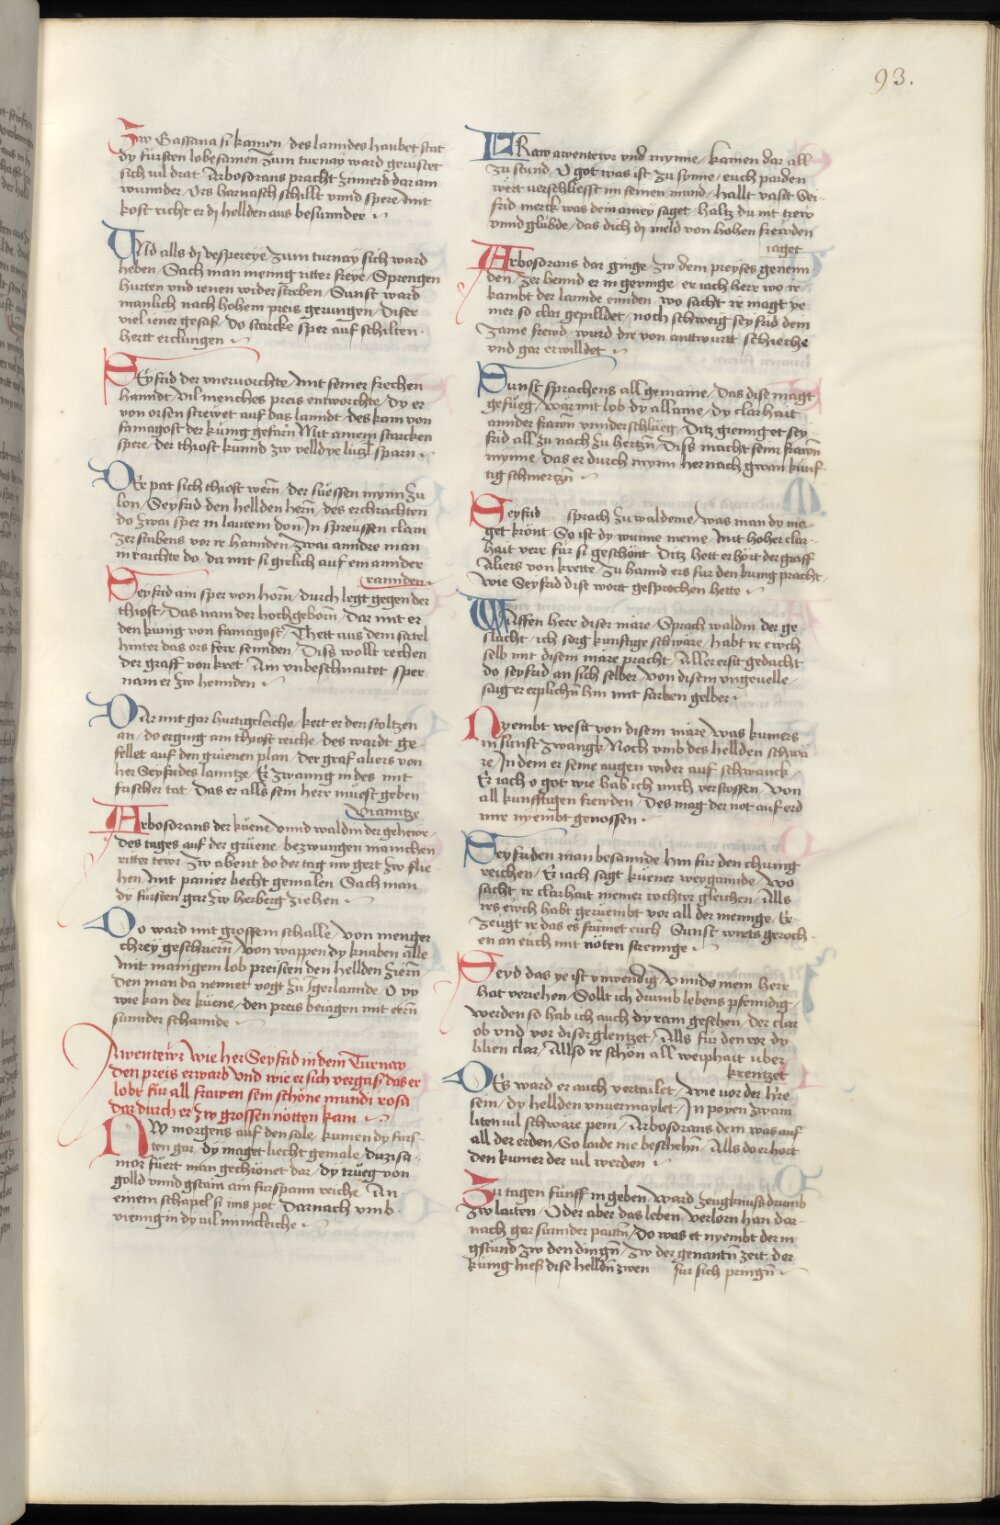 93.
Zw Gassana si kamen / des lanndes haubet stat
dy fursten lobesamen / Zum turnay ward gerustet
sich vil drat / Arbosdrans pracht zymerd dar an
wunnder / Ors harnasch schillt vnnd spere / mit
kost richt er dj hellden aus besunnder
Vnd alls dj vespereye / Zum turnay sich ward
heben / Sach man mennig ritter freye / Sprengen
hurten vnd yenen wider streben / Sunst ward
manlich nach hohem preis gerungen / Diser
viel iener gesass / do starcke sper auf schilten
hertt erclungen
Seyfrid der vneruorchte / mit seiner frechen
hanndt / Vil menches preis entworchte / dy er
von orsen strewet auf das lanndt / des kam von
famagost der kunig gefarn / Mit ainem starcken
spere / der thiost kunnd zw velldye lutzl sparn
Der pat sich thiost wern / der suessen mynn zu
lon / Seyfrid den hellden hern / des erchrachten
do zwai sper in lautem don / In spreussen clain
zerstubens vor ir hannden / zwai anndre man
in raichte do / da mit si girlich auf ein annder
rannden
Seyfrid ain sper von horn / durch legt gegen der
thiost / Das nam der hochgeborn / Dar mit er
den kunig von famagost / Thett aus dem satel
hinter das ors ferre sennden / Diss wollt rechen
der graff von kret / Ain vnbeschnaitet sper
nam er zw hennden
Dar mit gar hurtigcleiche / kert er den stoltzen
an / do erging ain thiost reiche / des wardt ge-
fellet auf den gruenen plan / der graf aliers von
her Seyfrides lanntze / Er zwanng in des mit
fuscher tat / Das er alls sein herr muest geben
Viannitze
Arbosdrans der kuene / vnnd waldin der gehewr
des tages auf der gruene / bezwungen manichen
ritter tewr / zw abent do der tag nw gert zw flie-
hen / mit panier liecht gemalen / Sach man
dy fursten gar zw herberg ziehen
Do ward mit grossem schalle / von menger
chrey geschriern / Von wappen dy knaben alle
mit manigem lob preisten den hellden ziern
den man da nennet vogt zu Igerlannde / O vy
wie kan der kuene / den preis beiagen mit ern
sunnder schannde
Awentewr wie her Seyfrid in dem Turnay
den preis erwarb vnd wie er sich vergas / das er
lobt fur all frawen sein schone mundirosa
dar durch er zw grossen notten kam
Nw morgens auf den sale / kumen dy furs-
ten gar / dy maget liecht gemale / duzisa-
mor fuert man gechronet dar / dy trueg von
golld vnnd gstain ain furspann reiche / An
einem schapel si ims pot / Darnach vmb
vieng in dy vil mynnicleiche
Fraw awentewr vnd mynne / kamen dar all
zu stund / O got was ist zu synne / euch paiden
wert verschliesst im seinen mund / hallt vasst Sei-
frid merck was dein amey saget / haltz du nit trew
vnnd glubde / das dich dj meld von hohen frewden
iaget
Arbosdrans dar ginge / zw dem preyses genenn-
den / zer hennd er in geuinge / er iach herr wo ir
kambt der lannde ennden / wo sacht ir magt ye
mer so clar gepilldet / noch schweig seyfrid dem
zame frewd / ward die von antwurtt schieche
vnd gar erwilldet
Sunst sprachens all gemaine / Das dise magt
gefueg / war mit lob dy allaine / dy clarhait
annder frawn vnnderschlueg / Ditz gienng et sey-
frid all zu nach zu hertzn / Diss macht seinr frawn
mynne / das er durch mynn hernach gwan kunf-
tig schmertzn
Seyfrid sprach zu waldeine / was man dy ma-
get kront / So ist dy wunne meine / mit hoher clar-
hait verr fur si geschont / Ditz hett erhort der graff
Aliers von krette / zu hannd ers fur den kunig pracht
wie Seyfrid dise wort gesprochen hette
Waffen herr diser mare / Sprach waldin der ge-
slacht / ich sorg kunftige schware / habt ir ewch
selb mit disem mare pracht / Aller ersst gedacht
do seyfrid an sich selber / von disem vngeuelle
saig er erplichn hin mit farben gelber
Nyembt wesst von disem mare / was kumers
in sunst zwangk / Noch vmb des hellden schwa-
re / In dem er seine augen wider auf schwanck
Er iach o got wie hab ich mich verstossen / von
all kunfftigen frewden / Des mag der not auf erd
mir nyembt genossen
Seyfriden man besannde / hin fur den chunig
reichen / Er iach sagt kuener weygannde / Wo
sacht ir clarhait meiner tochter gleichen / Alls
irs ewch habt geruembt vor all der mennge / Er-
zeugt ir das es frumet euch / Sunst wirts geroch-
en an euch mit noten strennge
Seyd das ye ist vnwendig / Vnnd s mein herr
hat veriehen / Sollt ich drumb lebens pfenndig
werden so hab ich auch dy rain gesehen / der clar
ob vnd vor diser glentzet / Alls fur den ror dy
lilien clar / Allso ir schon all weiphait uber
krentzet
Des ward er auch vertailet / Wie vor der hre
sein / dy hellden vnuermaylet / In poyen zwain
liten vil schware pein / Arbosdrans dem was auf
all der erden / So laide nie beschehn / Alls do er hort
den kumer der vil werden
Zu tagen funff im geben / ward zeugknuss drumb
zw lauten / Oder aber das leben / verlorn han dar-
nach gar sunnder pautn / Do was et nyembt der in
gstund zw den dingn / Zw der genantn zeit / der
kunig hiess dise helldn zwen fur sich pringn